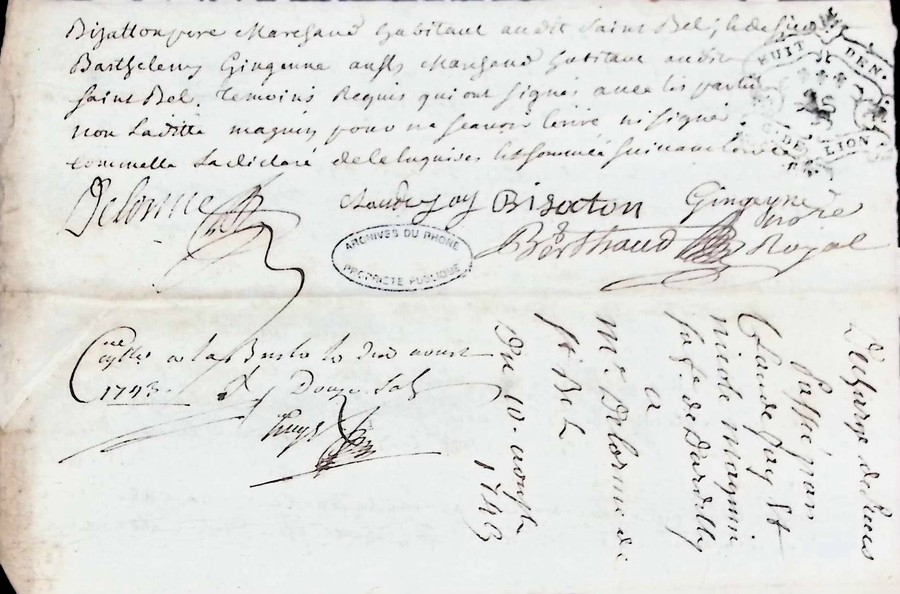 Bizatton pere Marchand habitant audit Saint Bel, &
Barthelemy Gingenne aussy Marchand habitant audit
Saint Bel. Temoins Requis qui ont signés avec les parties
non Laditte magnin pour ne scavoir Ecrire ni signer
comme elle La declaré de ce Enquises et sommée suivant
HUIT DEN.
G. DE LION
Delorme
claude jay Bizatton Gingenne
Berthaud Nore Royal
ARCHIVES DU RHONE
PROPRIETE PUBLIQUE
a la Bresle le dix aoust
1743. Douze Sols
Decharge de
Passé par
Claude Jay Et
nicole Magnin
sa fe. de Dardilly
a
Mr. Delorme de
St Bel
Du 10. aoust
1743